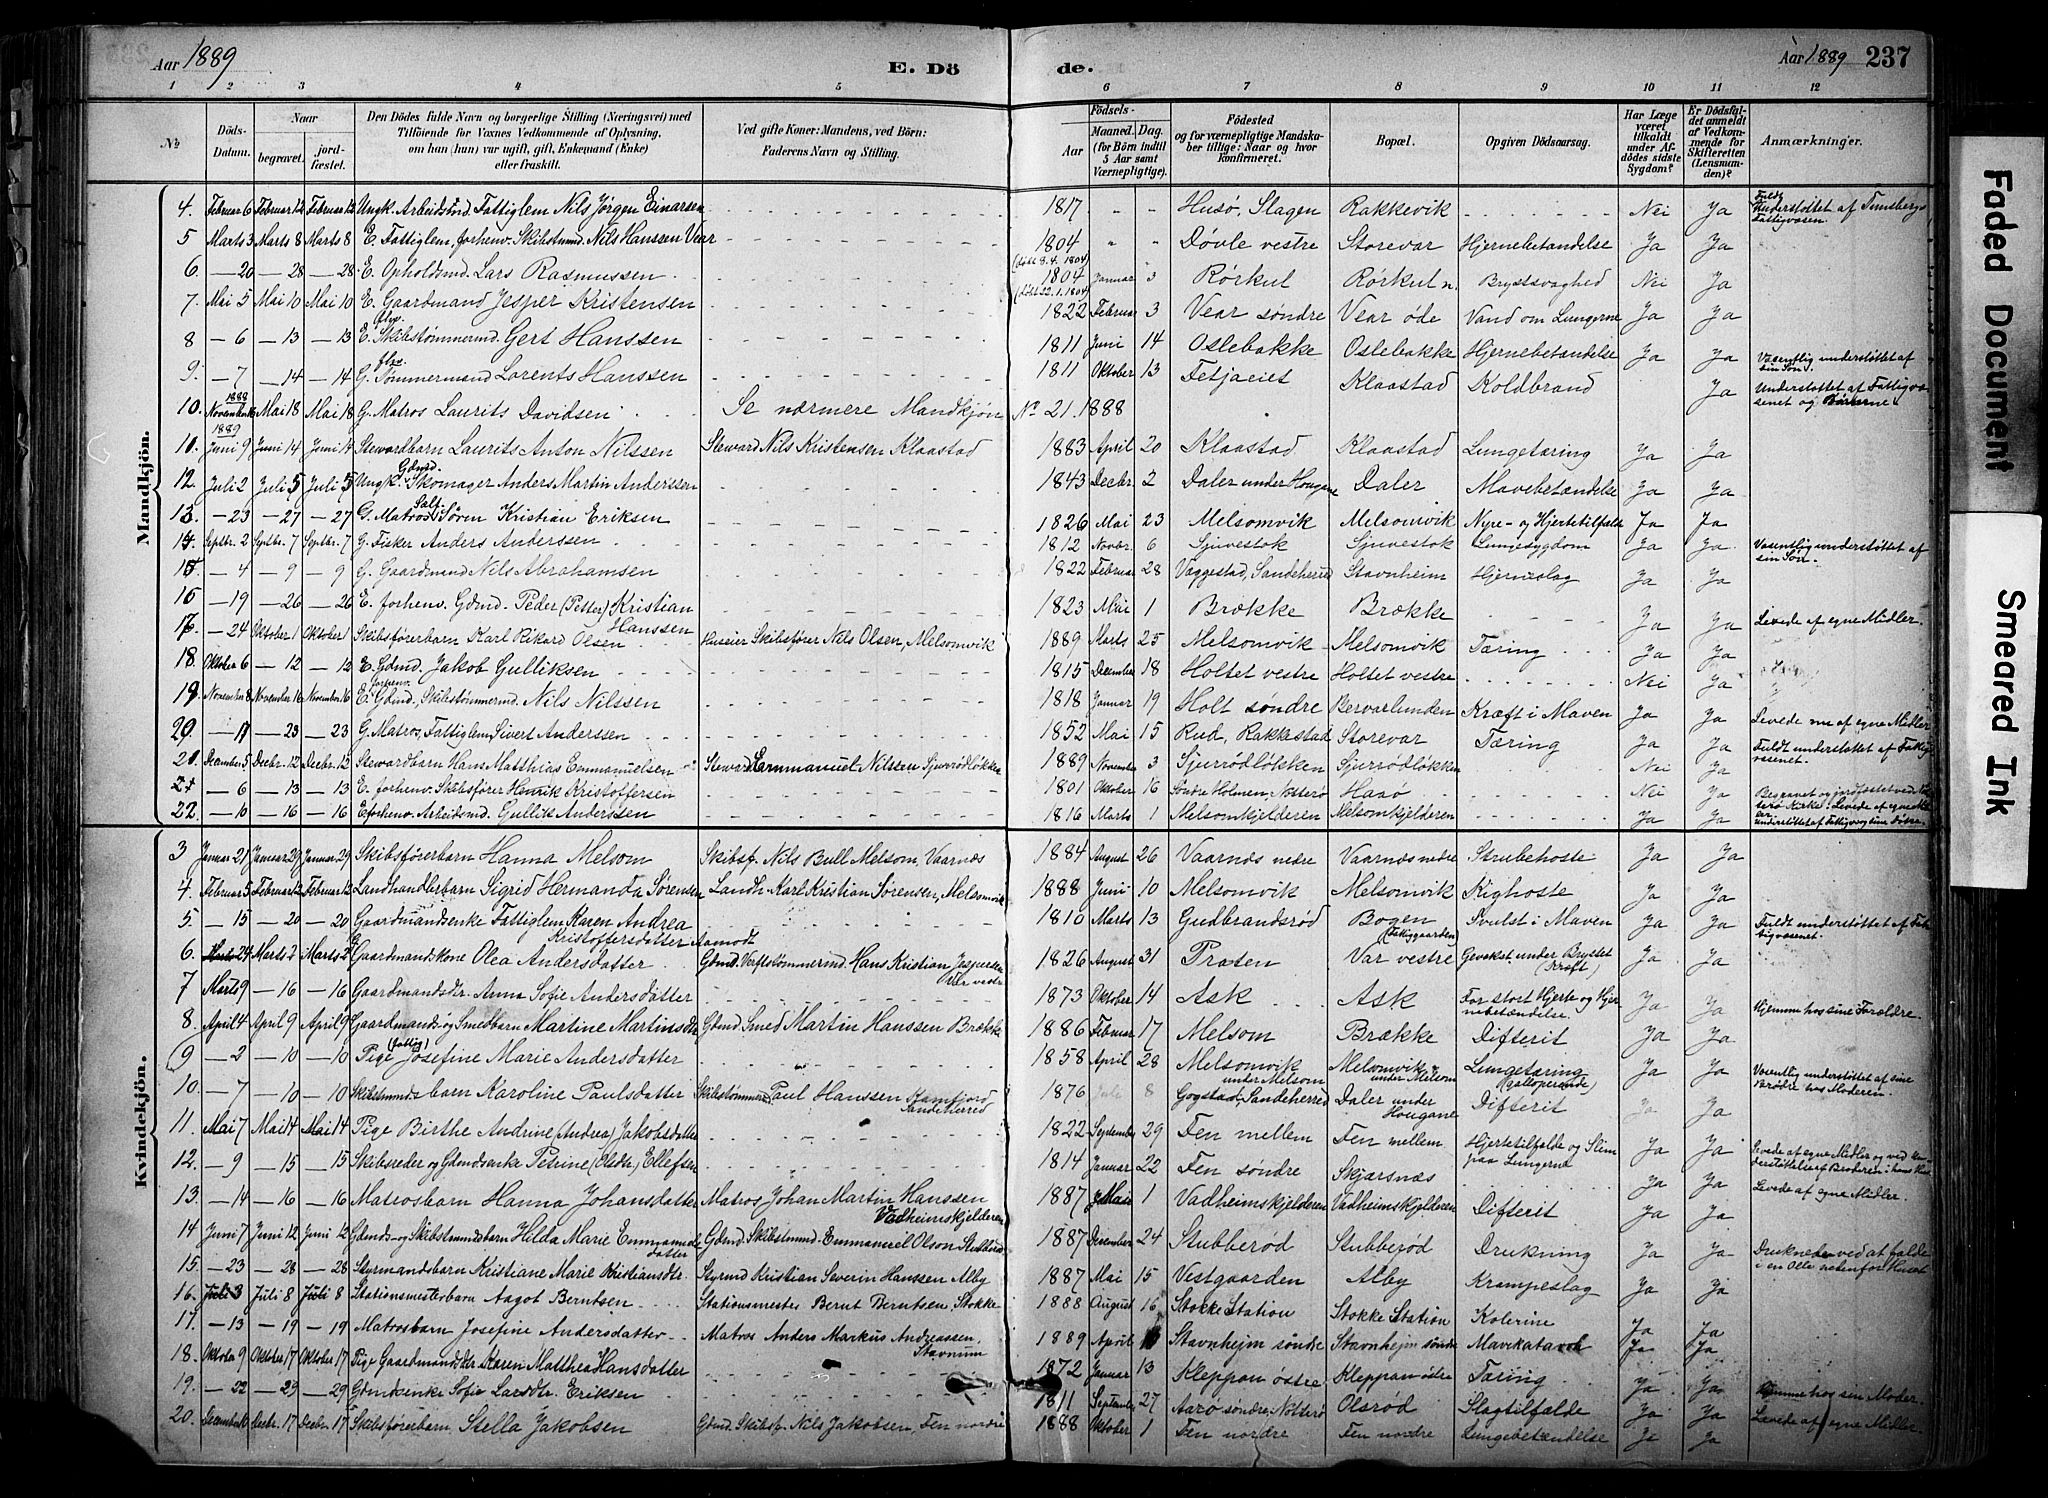 Aar 1889
E. Dö
de.
Aar 1889 237
1 2 3 4 5 6 7 8 9 10 11 12
№
Döds-Datum.
Naar
begravet.
jord-fæstet.
Den Dödes fulde Navn og borgerlige Stilling (Næringsvei) med Tilföiende for Voxnes Vedkommende af Oplysning, om han (hun) var ugift, gift, Enkemand (Enke) eller fraskilt.
Ved gifte Koner: Mandens, ved Börn: Faderens Navn og Stilling.
Födsels-
Aar
Maaned. Dag. (for Börn indtil 5 Aar samt Værnepligtige).
Födested og for værnepligtige Mandskaber tillige: Naar og hvor konfirmeret.
Bopæl.
Opgiven Dödsaarsag.
Har Læge været tilkaldt under Afdödes sidste Sygdom?
Er Dödsfaldet anmeldt af Vedkommende for Skifteretten (Lensmanden)?
Anmærkninger.
Mandkjön.
4. Februar 6 Februar 12 Februar 12 Ungk. Arbeidsmd. Fattiglem Nils Jörgen Einarsen 1817 " " Husø, Slagen Rakkevik Nei Ja Fuldt understøttet af Tønsbergs Fattigvæsen
5 Marts 3 Marts 8 Marts 8 E. Fattiglem, forhenv. Skibstmd. Nils Hanssen Vear 1804 " " Døvle vestre Storevar Hjernebetændelse Ja Ja
(døbt 8.4.1804)
6 — 20 — 28 — 28 E. Opholdsmd. Lars Rasmussen 1804 Januar 3 Rørkul Rørkul n. Brystsvaghed Nei Ja
(døbt 22.1.1804)
7. Mai 5 Mai 10 Mai 10 E. Gaardmand Jesper Kristensen 1822 Februar 3 Vear søndre Vear øde Vand om Lungerne Ja Ja
8 — 6 — 13 — 13 E. fhv. Skibstømmermd. Gert Hanssen 1811 Juni 14 Oslebakke Oslebakke Hjernebetændelse Ja Ja Væsentlig understøttet af sin Søn.
9. — 7 — 14 — 14 G. fhv. Tømmermand Lorents Hanssen 1811 Oktober 13 Fetjaeiet Klaastad Koldbrand Ja Understøttet af Fattigvæsenet og Børnene
1888
10. November Mai 18 Mai 18 G. Matros Laurits Davidsen Se nærmere Mandkjøn No 21. 1888
1889
Juni 9 Juni 14 Juni 14 Stewardbarn Laurits Anton Nilssen Steward Nils Kristensen Klaastad 1883 April 20 Klaastad Klaastad Lungetæring Ja Ja
12 Juli 2 Juli 5 Juli 5 Ungk. Gdmd. Skomager Anders Martin Anderssen 1843 Decbr. 2 Daler under Hougane Daler Mavebetændelse Ja Ja
13. — 23 — 27 — 27 G. Matros Søren Kristian Eriksen 1826 Mai 23 Melsomvik Melsomvik Nyre- og Hjertetilfald Ja Ja
14 Septbr. 2 Septbr. 7 Septbr. 7 G. Fisker Anders Anderssen 1812 Novbr. 6 Sjuvestok Sjuvestok Lungesygdom Ja Ja Væsentlig understøttet af sin Søn.
15 — 4 — 9 — 9 G. Gaardmand Nils Abrahamsen 1822 Februar 28 Vaggestad, Sandeherred Stavnheim Hjerneslag Ja Ja
16 — 19 — 26 — 26 E. forhenv. Gdmd. Peder (Petter) Kristian Hanssen 1823 Mai 1 Brække Brække Ja Ja Levede af egne Midler.
17. — 24 Oktober 1 Oktober 1 Skibsførerbarn Karl Rikard Olsen Husier Skibsfører Nils Olsen, Melsomvik 1889 Marts 25 Melsomvik Melsomvik Tæring Ja Ja
18. Oktober 6 — 12 — 12 E. Gdmd. Jakob Gulliksen 1815 December 18 Holtet vestre Holtet vestre Nei Ja
19. November 8 November 16 November 16 E. forhenv. Gdmd., Skibstømmermd. Nils Nilssen 1818 Januar 19 Holt søndre Bervarlunden Kræft i Maven Ja Ja Levede nu af egne Midler
20. — 17 — 23 — 23 G. Matros, Fattiglem Sivert Anderssen 1852 Mai 15 Rud, Rakkestad Storevar Tæring Ja Ja Fuldt understøttet af Fattigvæsenet.
21. December 5 Decbr. 12 Decbr. 12 Stewardbarn Hans Matthias Emmanuelsen Steward Emmanuel Nilssen Sjurrødløkken 1889 November 3 Sjurrødløkken Sjurrødløkken Nei Ja
— 6 — 13 — 13 E. forhenv. Skibsfører Henrik Kristoffersen 1801 Oktober 16 Søndre Holmen, Nøtterø Hasø Nei Ja Begravet og jordfæstet ved Nøtterø Kirke.
22. — 10 — 16 — 16 E. forhenv. Arbeidsmd. Gullik Anderssen 1816 Marts 1 Melsomkjelderen Melsomkjelderen Ja Ja
Kvindekjön.
3 Januar 21 Januar 29 Januar 29 Skibsførerbarn Hanna Melsom Skibsf. Nils Bull Melsom, Vaarnæs 1884 August 26 Vaarnæs nedre Vaarnæs nedre Strubehoste Ja Ja
4. Februar 5 Februar 12 Februar 12 Landhandlerbarn Sigrid Hermanda Sørensen Landh. Karl Kristian Sørensen, Melsomvik 1888 Juni 10 Melsomvik Melsomvik Kighoste Ja Ja
5 — 15 — 20 — 20 Gaardmandsenke Fattiglem Karen Andrea Kristoffersdatter Aamodt 1810 Marts 13 Gudbrandsrød Bogen (Fattiggaarden) Svulst i Maven Ja Ja Fuldt understøttet af Fattigvæsenet.
6 24 Marts 2 Marts 2 Gaardmandskone Olea Andersdatter Gdmd. Værftstømmermd. Hans Kristian Jespersen Vær vestre 1826 August 31 Præsten Vær vestre Gevækst under Brystet (Kræft) Ja Ja
7 Marts 9 — 16 — 16 Gaardmandsdtr. Anna Sofie Andersdatter 1873 Oktober 14 Ask Ask For stort Hjerte og Hjernebetændelse Ja Ja Hjemme hos sine Forældre.
8. April 4 April 9 April 9 Gaardmands- og Smedbarn Martine Martinsdtr. Gdmd. Smed Martin Hanssen Brække 1886 Februar 17 Melsom Brække Difterit Ja Ja
9 — 2 — 10 — 10 Pige (fattig) Josefine Marie Andersdatter 1858 April 28 Melsomvik under Melsom Melsomvik under Melsom Lungetæring (galloperende) Ja Ja Væsentlig understøttet af sine Brødre hos Moderen.
10. — 7 — 10 — 10 Skibstmdsbarn Karoline Paulsdatter Skibstømmermd. Paul Hanssen Kamfjord Sandeherred 1876 8 Gogstad, Sandeherred Daler under Hougane Difterit Ja Ja
11. Mai 7 Mai 14 Mai 14 Pige Birthe Andrine (Andrea) Jakobsdatter 1822 September 29 Fen mellem Fen mellem Hjertetilfalde og Slim paa Lungerne Ja Ja Levede af egne Midler og ved Understøttelse af Broderen i hans Hus
12. — 9 — 15 — 15 Skibsreder og Gdmdsenke Petrine (Olsdtr.) Ellefsen 1814 Januar 22 Fen søndre Skjærsnæs Ja Ja Levede af egne Midler.
13. — 14 — 16 — 16 Matrosbarn Hanna Johansdatter Matros Johan Martin Hanssen Vadheimskjelderen 1887 Mai 1 Vadheimskjelderen Vadheimskjelderen Difterit Ja Ja
14 Juni 7 Juni 12 Juni 12 Gdmds- og Skibstmdsbarn Hilda Marie Emmanuelsdatter Gdmd. Skibstmd. Emmanuel Olson Stubberød 1887 December 24 Stubberød Stubberød Drukning Ja Ja Druknede ved at falde i en Olle nedenfor Huset
15. — 23 — 28 — 28 Styrmandsbarn Kristiane Marie Kristiansdtr. Styrmd Kristian Severin Hanssen Alby 1887 Mai 15 Vestgaarden Alby Krampeslag Ja Ja
16. Juli 3 Juli 8 Juli 8 Stationsmesterbarn Aagot Berntsen Stationsmester Bernt Berntsen, Stokke 1888 August 16 Stokke Station Stokke Station Kolerine Ja Ja
17. — 13 — 19 — 19 Matrosbarn Josefine Andersdatter Matros Anders Markus Andreassen Stavnum 1889 April Stavnhejm søndre Stavnhejm søndre Mavekatarrh Ja Ja
18. Oktober 9 Oktober 17 Oktober 17 Pige Gaardmandsdtr. Karen Matthea Hansdatter 1872 Januar 13 Kleppan østre Kleppan østre Tæring Ja Ja Hjemme hos sin Moder
19. — 22 — 29 — 29 Gdmdsenke Sofie Larsdtr. Eriksen 1811 September 27 Aarø søndre, Nøtterø Olsrød Slagtilfælde Ja Ja Levede af egne Midler.
20. December Decbr. 17 Decbr. 17 Skibsførerbarn Stella Jakobsen Gdmd. Skibsf. Nils Jakobsen, Fen nordre 1888 Oktober 1 Fen nordre Fen nordre Lungebetændelse Ja Ja
Faded Document
Smeared Ink